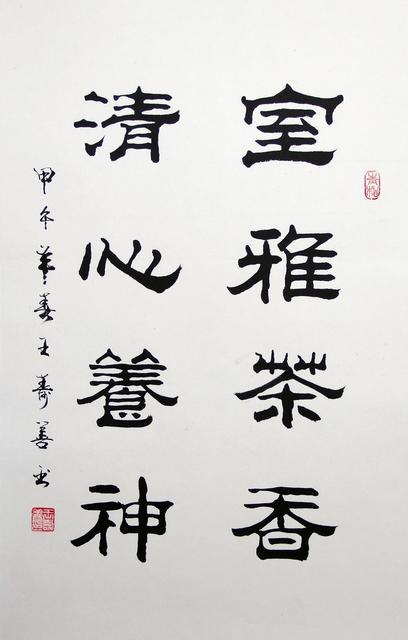 室雅茶香
清心養神
甲午孟春王壽善书